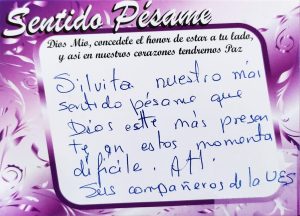 Sentido Pésame
Dios Mio, concedele el honor de estar a tu lado,
y asi en nuestros corazones tendremos Paz
Silvita nuestro más
sentido pésame que
Dios este más presen
te en estos momento
dificile. Att.
Sus compañeros de la UES